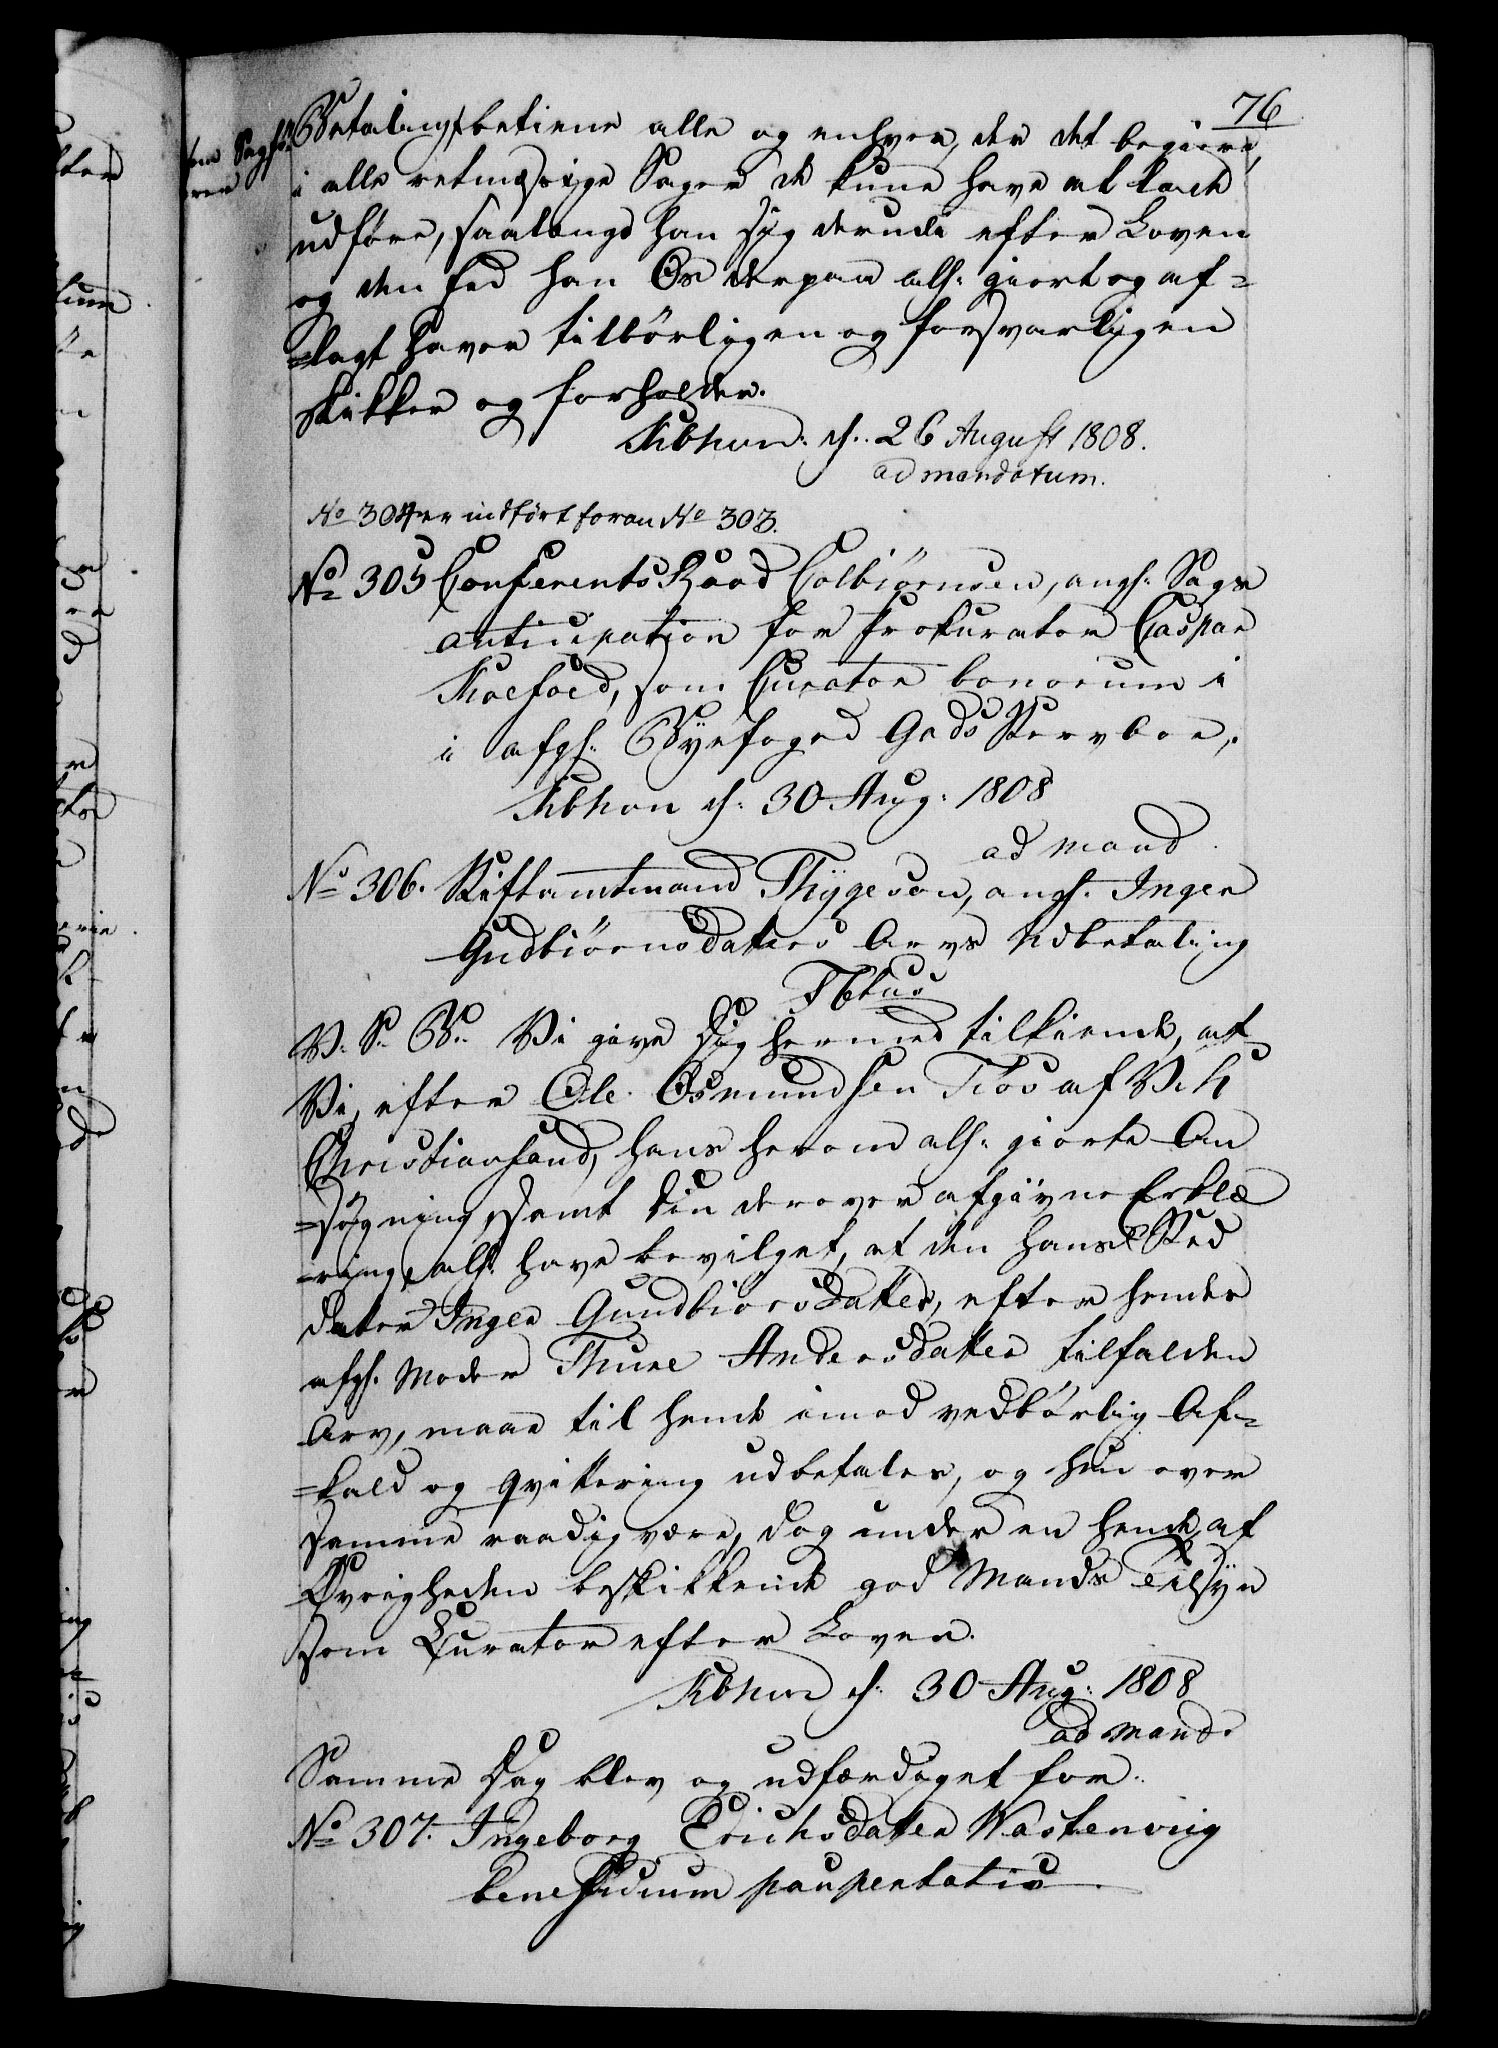 76
Betaling, betiene alle og enhver, der det begiere,
i alle retmæsige Sager de kune have at lade
udføre, saalangt han sig derudi efter Loven
og den Eed han Os derpaa alh: giort og af=
=lagt haver tilbørligen og forsvarligen
skikker og forholder.
Kbhvn: d: 26 August 1808.
ad mandatum.
No 304 er indført foran No 303.
No 305 Conferents Raad Colbiørnsen, angh: Sags
anticipation for Prokurator Caspar
Koefoed, som Curator bonorum i
i afgh: Byefoged Gads Stervboe,
Kbhvn d: 30 Aug: 1808
ad mand.
No 306. Stiftamtmand Thygeson, angh: Inger
Gudbiørnsdatters Arvs Udbetaling
V. S. G. Vi give Dig hermed tilkiende, at
Vi, efter Ole Osmundsen Tios af Vih
Christiansand, hans herom alh: giorte An
=søgning, samt Din derover afgivne Erklæ
=ring, alh: have bevilget, at den hans Sted
dater Inger Gundbiørsdatter, efter hendes
afgh: Moder Thure Andersdatter tilfalden
Arv, maae til hende imod vedbørlig Af=
=kald og Qvittering udbetales, og hun over
samme raadig være, dog under en hende af
Øvrigheden beskikkende god Mands Tilsyn
som Curator efter Loven.
Kbhvn d: 30 Aug: 1808
ad mand:
Samme Dag blev og udfærdiget for.
No 307. Ingeborg Erichsdatter Wastenvig
beneficium paupertatis